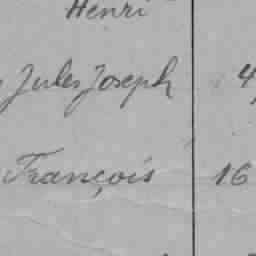 Henri
Jules Joseph 4
François 16